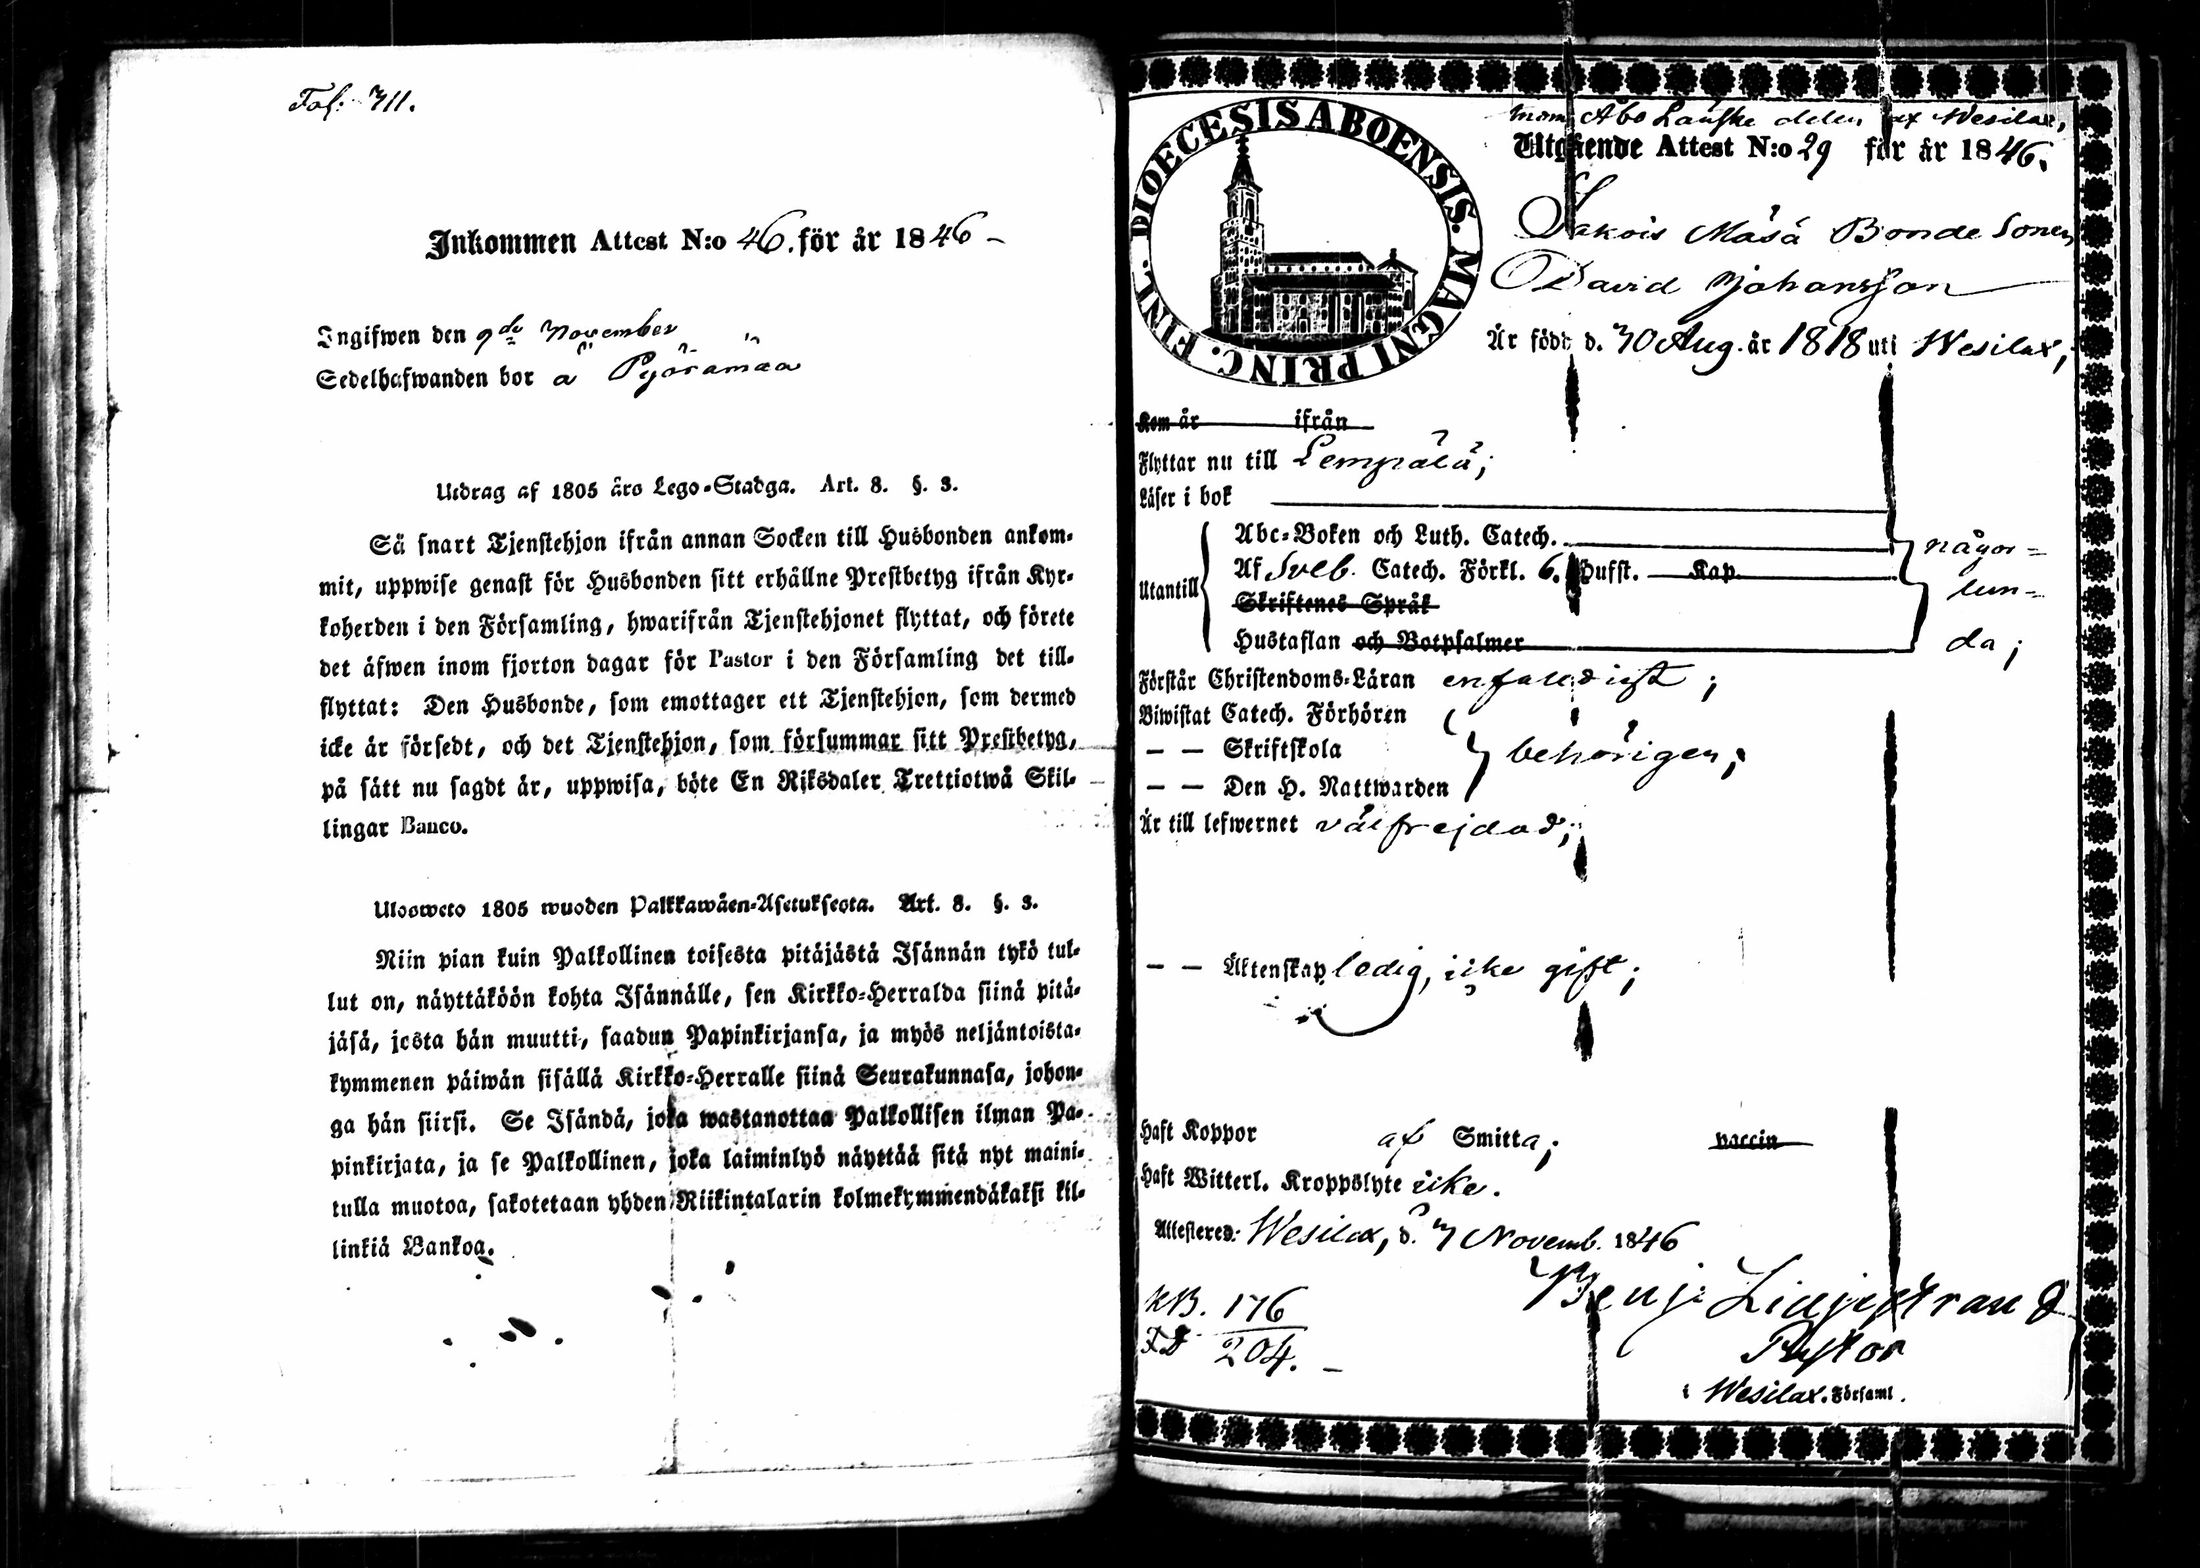 Fol: 311.
Inkommen Attest N:o 46. för år 1846 –
Ingifwen den 9de November
Sedelhafwanden bor å Pyörämää
Utdrag af 1805 års Lego-Stadga. Art. 8. §. 3.
Så snart Tjenstehjon ifrån annan Socken till Husbonden ankom-
mit, uppwise genast för Husbonden sitt erhållne Prestbetyg ifrån Kyr-
koherden i den Församling, hwarifrån Tjenstehjonet flyttat, och förete
det äfwen inom fjorton dagar för Pastor i den Församling det till-
flyttat: Den Husbonde, som emottager ett Tjenstehjon, som dermed
icke är försedt, och det Tjenstehjon, som försummar sitt Prestbetyg,
på sätt nu sagdt är, uppwisa, böte En Riksdaler Trettiotwå Skil-
lingar Banco.
Ulosweto 1805 wuoden Palkkawäen-Asetuksesta. Art. 8. §. 3.
Niin pian kuin Palkollinen toisesta pitäjästä Isännän tykö tul-
lut on, näyttäköön kohta Isännälle, sen Kirkko-Herralda siinä pitä-
jäsä, josta hän muutti, saadun Papinkirjansa, ja myös neljäntoista-
kymmenen päiwän sisällä Kirkko-Herralle siinä Seurakunnasa, johon-
ga hän siirsi. Se Isändä, joka wastanottaa Palkollisen ilman Pa-
pinkirjata, ja se Palkollinen, joka laiminlyö näyttää sitä nyt maini-
tulla muotoa, sakotetaan yhden Riikintalarin kolmekymmendäkaksi kil-
linkiä Bankoa.
DIOECESIS ABOENSIS. MAGNI PRINC. FINL.
Åbo Länske delen af Wesilax,
Utgående Attest N:o 29 för år 1846.
Bonde Sonen
David Johansson
Är född d. 30 Aug. år 1818 uti Wesilax,
Kom år ifrån
Flyttar nu till Lempälä;
Läser i bok
Abc-Boken och Luth. Catech. någor=
Utantill Af Sveb. Catech. Förkl. 6. Hufst. Kap. lun=
Skriftenes Språk
Hustaflan och Botpsalmer da;
Förstår Christendoms-Läran enfaldigt;
Biwistat Catech. Förhören
— — Skriftskola behörigen;
— — Den H. Nattwarden
Är till lefwernet välfrejdad;
— — Äktenskap ledig, icke gift;
Haft Koppor af Smitta; vaccin
Haft Witterl. Kroppslyte icke.
Attesteres: Wesilax, d. 7 Novemb. 1846
KB. 176
204. –
Benj: Liljestrand
Pastor
i Wesilax. Församl.